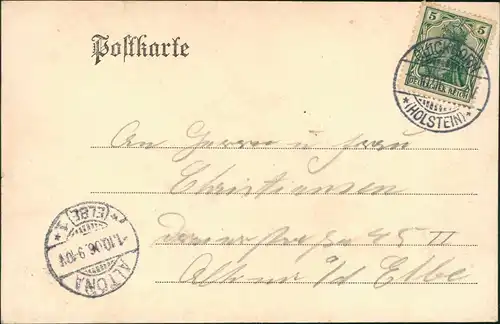 Postkarte
5
DEUTSCHES REICH
*(HOLSTEIN)*
An Herrn u Frau
Christiansen
45 II
Altona a/d Elbe
ALTONA
1.10.06.9-10V
*(ELBE)1*